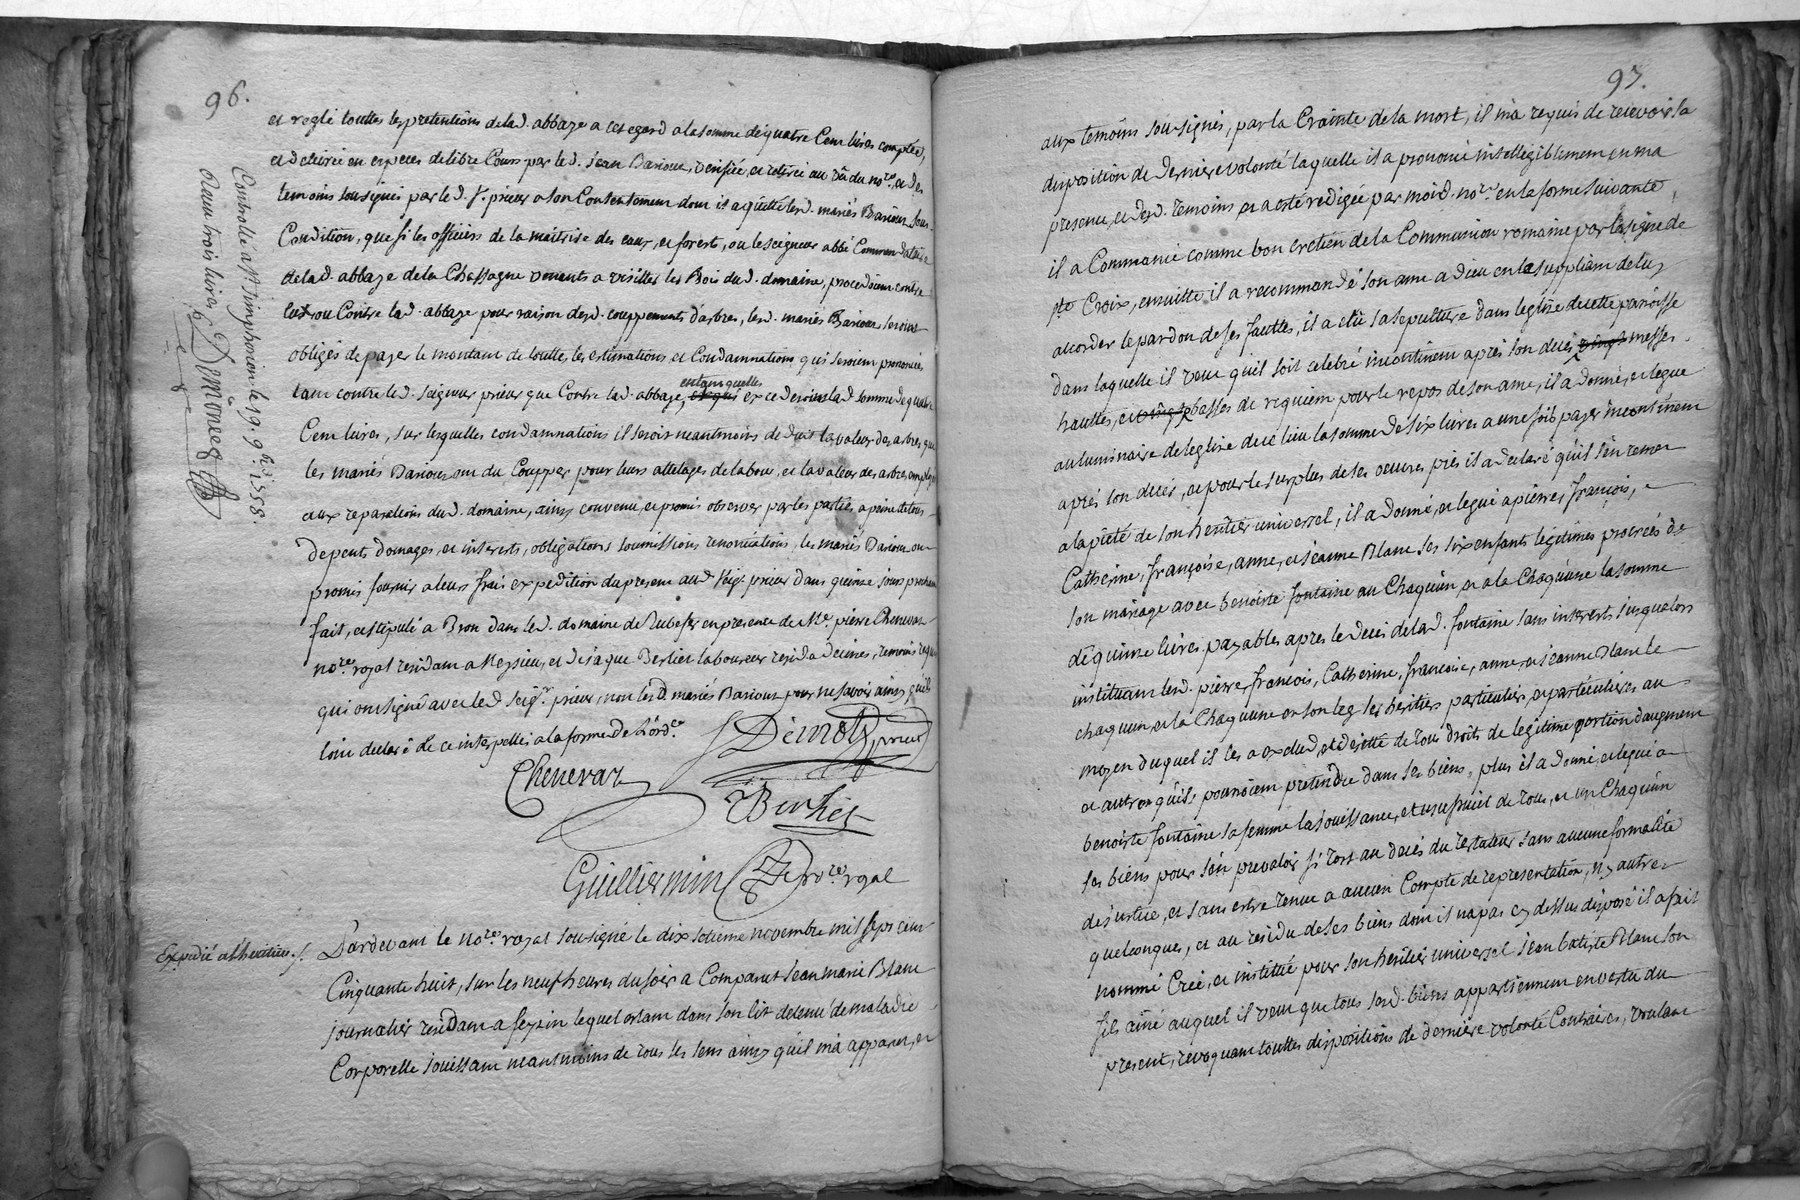 96.
et reglé touttes les pretentions de lad. abbaye a cet egard a la somme de quatre Cent livres comptée,
et delivrée en especes de libre Cours par led. jean Bariour, verifiée, et retirée au vû du no.re, et des
temoins sousignés par led. s.r prieur a son Contentement dont il a quitté lesd. mariés Bariour sous
Condition, que si les officiers de la maitrise des eaux, et forests, ou le seigneur abbé Commendataire
de lad. abbaye de la Chassagne venants a visitter les Bois dud. domaine, procedoient contre
luy ou Contre lad. abbaye pour raison desd. couppements d'arbres, lesd. mariés Bariour seroint
obligés de payer le montant de toutte les estimations et Condamnations qui seroint prononcées
tant contre led. seigneur prieur que Contre lad. abbaye, entant quelles excederoint lad somme de quatre
Cent livres, sur lesquelles condamnations il seroit neantmoins deduit la valeur des arbres, que
les mariés Bariour ont du Coupper pour leurs attelages de labour, et la valeur des arbres employés
aux reparations dud. domaine, ainsy convenu, et promis observer par les parties a peine de tous
depents, domages, et interests, obligations soumissions renonciations, les mariés Bariour ont
promis fournir a leurs frais expedition du present aud. seig.r prieur dans quinze jours prochains
fait, et stipulé a Bron dans led. domaine de Rebufer en presence de M.e pierre Chenevaz
no.re royal residant a Meysieu, et de jaque Berlier laboureur resid.t a decines, temoins requis
qui ont signé avec led. seig.r prieur, non lesd. mariés Bariour pour ne savoir ainsy qu'ils
l'ont declaré de ce interpellés a la forme de l'ord.ce
Demolz prieur
Chenevaz
Berlier
Guillermin no.re royal
Controllé a s.t simphorien le 19. 9.bre 1758.
Reçu trois livres
Demoneed
Expedié a l'heritier.
Pardevant le no.re royal sousigné le dix septieme novembre mil sept cent
Cinquante huit, sur les neuf heures du soir a Comparut Jean marie Blanc
journalier residant a feyzin lequel estant dans son lit detenu de maladie
Corporelle jouissant neantmoins de tous les sens ainsy qu'il m'a apparut, et
97.
aux temoins sousignés, par la Crainte de la mort, il m'a requis de recevoir sa
disposition de derniere volonté laquelle il a prononcé intelligiblement en ma
presence, et desd. temoins et a esté redigée par moid. no.re en la forme suivante
il a Commencé comme bon cretien de la Communion romaine par le signe de
s.te Croix, ensuitte il a recommandé son ame a Dieu en le suppliant de luy
accorder le pardon de ses fauttes, il a elû sa sepulture dans leglise de cette paroisse
dans laquelle il veut qu'il soit celebré incontinent après son decés vingt messes
hauttes, et vingt basses de requiem pour le repos de son ame, il a donné, et legué
au luminaire de leglise de ce lieu la somme de six livres a une fois payer incontinent
aprés son decés, et pour le surplus de ses oeuvres pies il a declaré qu'il s'en remet
a la pieté de son heritier universel, il a donné, et legué a pierre, françois,
Catherine, françoise, anne, et jeanne Blanc ses six enfants legitimes procréés de
son mariage avec benoiste fontaine au Chaqu'un, et a la Chaqu'une la somme
de quinze livres payables apres le decés de lad. fontaine sans interests jusqu'alors
instituant lesd. pierre, françois, Catherine, françoise, anne, et jeanne Blanc le
chaqu'un et la Chaqu'une en son leg ses heritiers particuliers, et particulieres au
moyen duquel il les a exclud, et dejetté de tous droits de legitime portion d'augment
et autres qu'ils pourroient pretendre dans ses biens, plus il a donné, et legué a
benoiste fontaine sa femme la jouissance, et usufruit de tous, et un Chaqu'un
ses biens pour s'en prevaloir si tost au decés du testateur sans aucune formalité
de justice, et sans estre tenue a aucun Compte de representation, n'y autre
quelconques, et au residu de ses biens dont il n'a pas cy dessus disposé il a fait
nommé Créé, et institué pour son heritier universel Jean batiste Blanc son
fils ainé auquel il veut que tous sesd. biens appartiennent en vertu du
present, revoquant touttes dispositions de derniere volonté Contraires, voulant